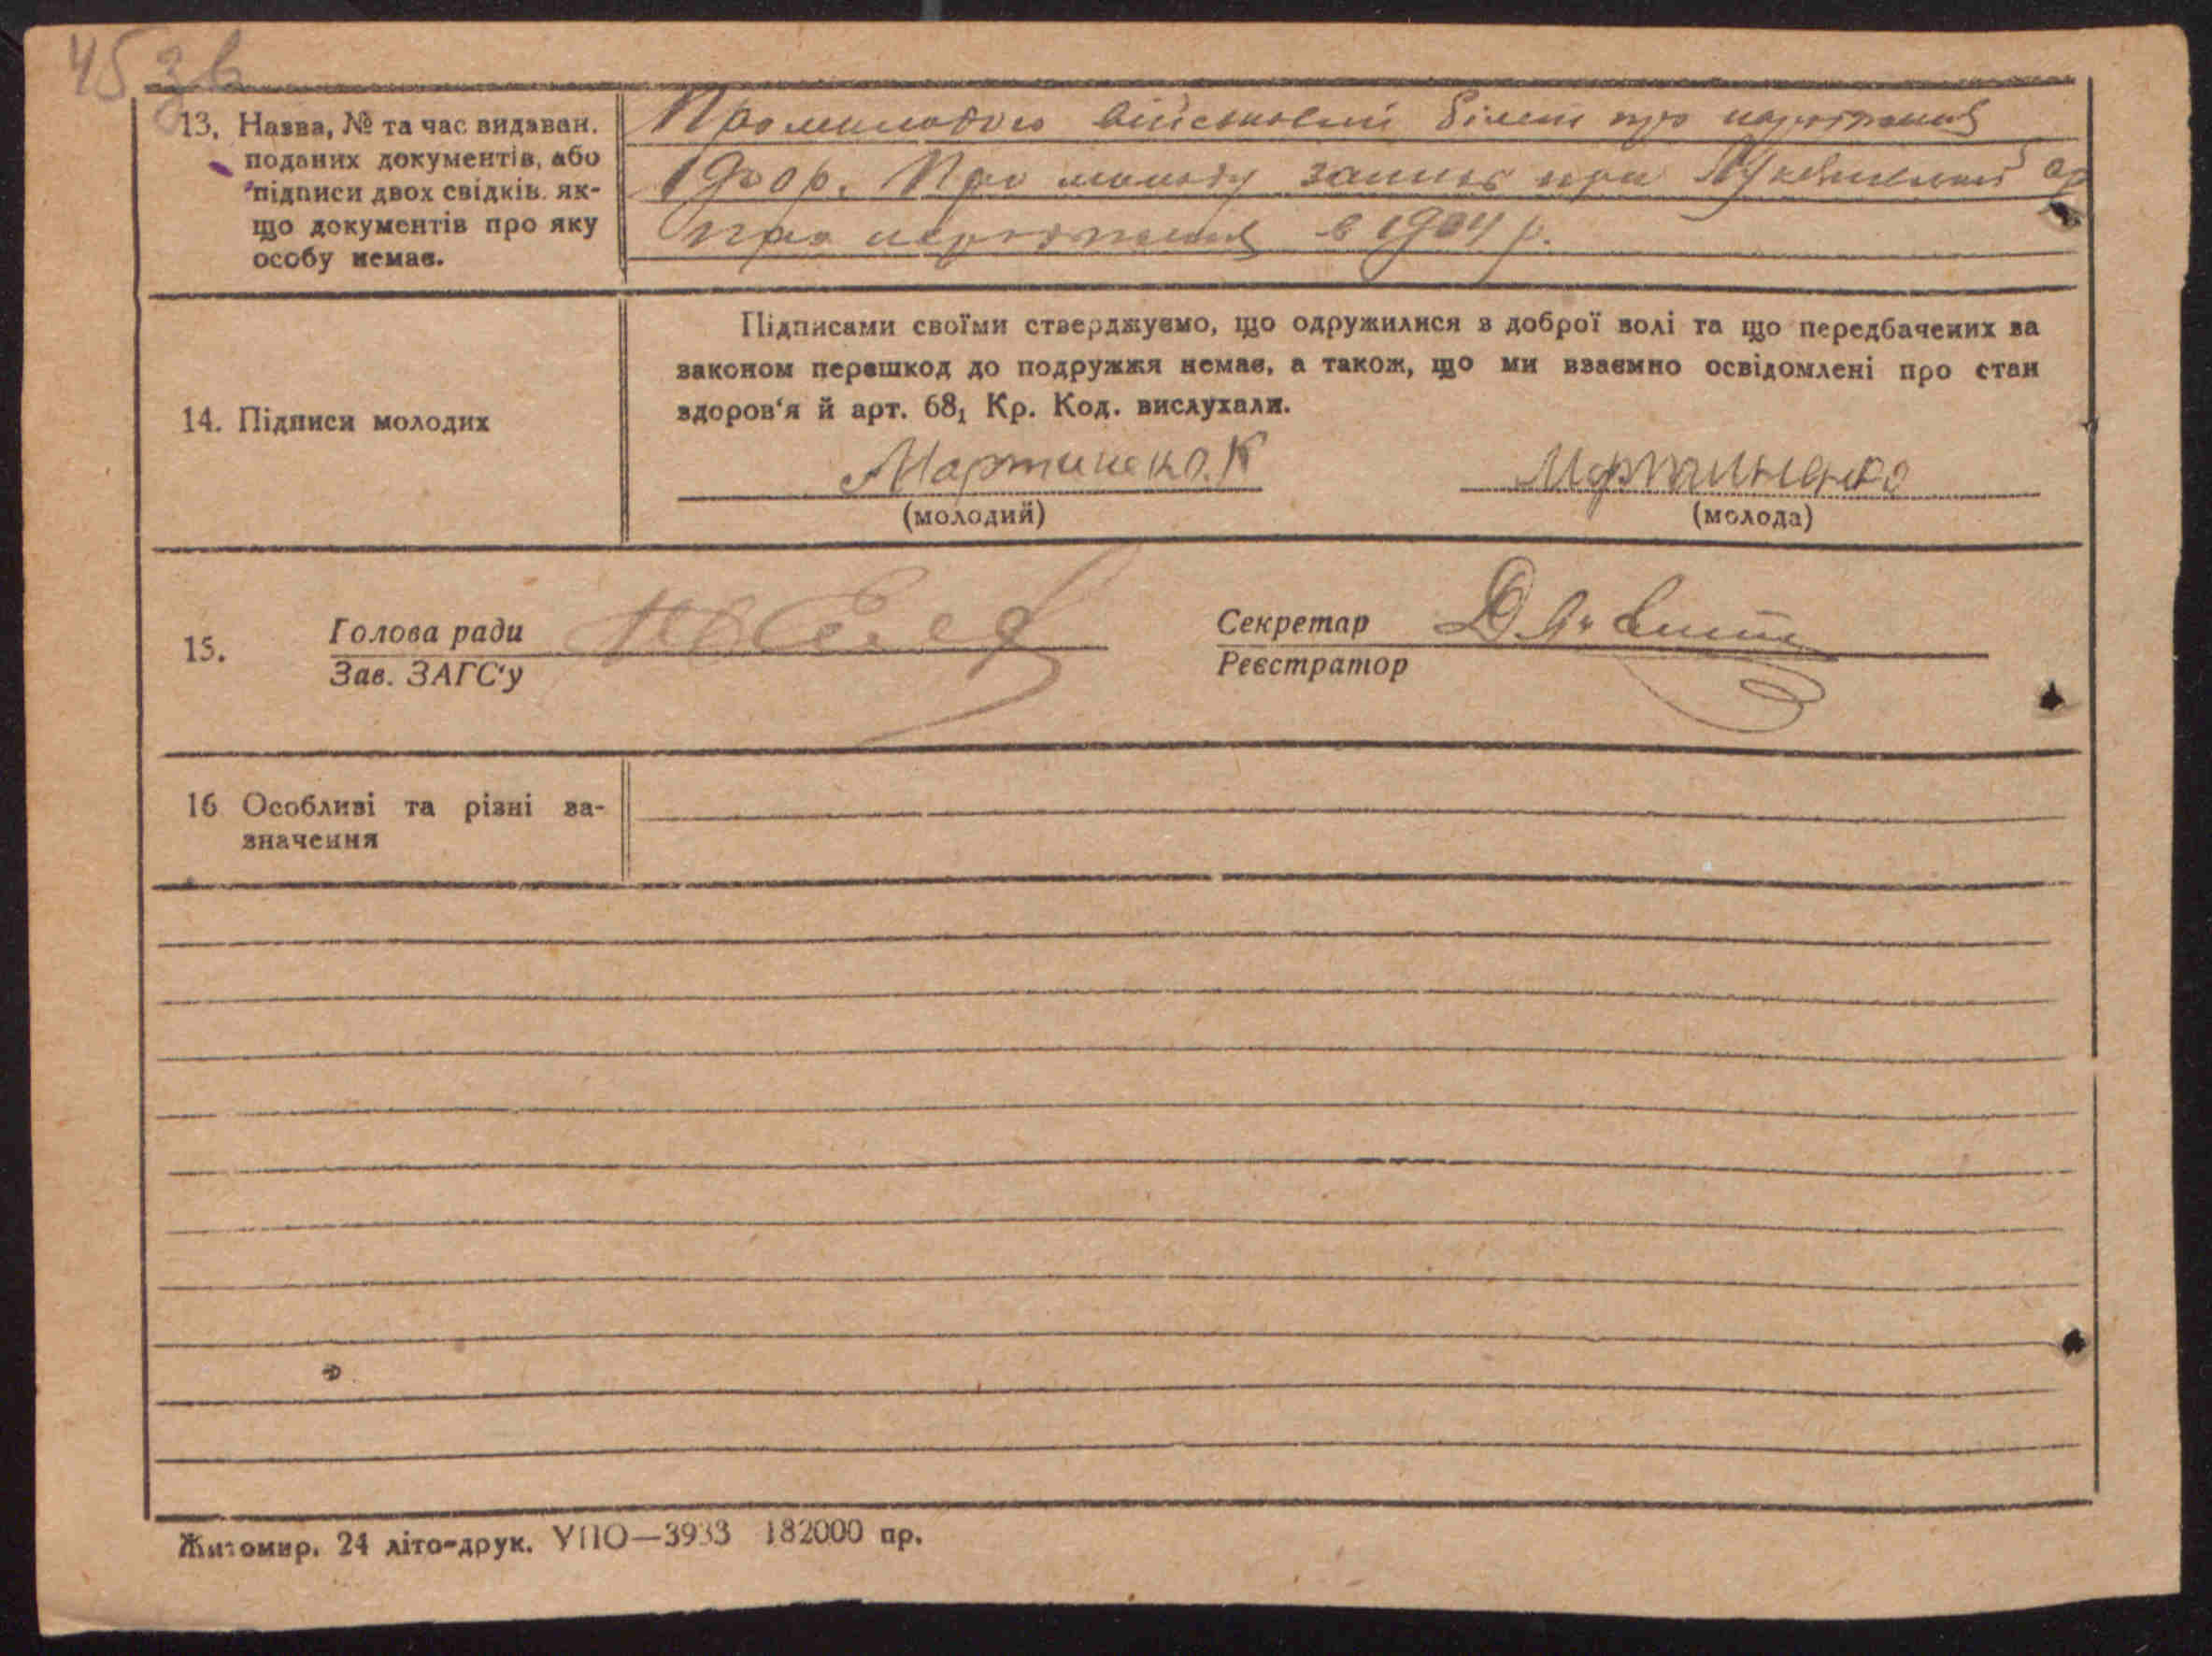 45 зв
13. Назва, № та час видаван.
поданих документів, або
підписи двох свідків. як-
що документів про яку
особу немає.
Про молодого військовий білет про народження
1900 р. Про молоду запис при
про народження в 1904 р.
Підписами своїми стверджуємо, що одружилися з доброї волі та що передбачених за
законом перешкод до подружжя немає, а також, що ми взаємно освідомлені про стан
здоров'я й арт. 68₁ Кр. Код. вислухали.
14. Підписи молодих
Мартиненко.К
Мартиненко
(молодий)
(молода)
15.
Голова ради
Зав. ЗАГС'у
Секретар
Реєстратор
16 Особливі та різні за-
значення
Житомир. 24 літо-друк. УПО—3933 182000 пр.